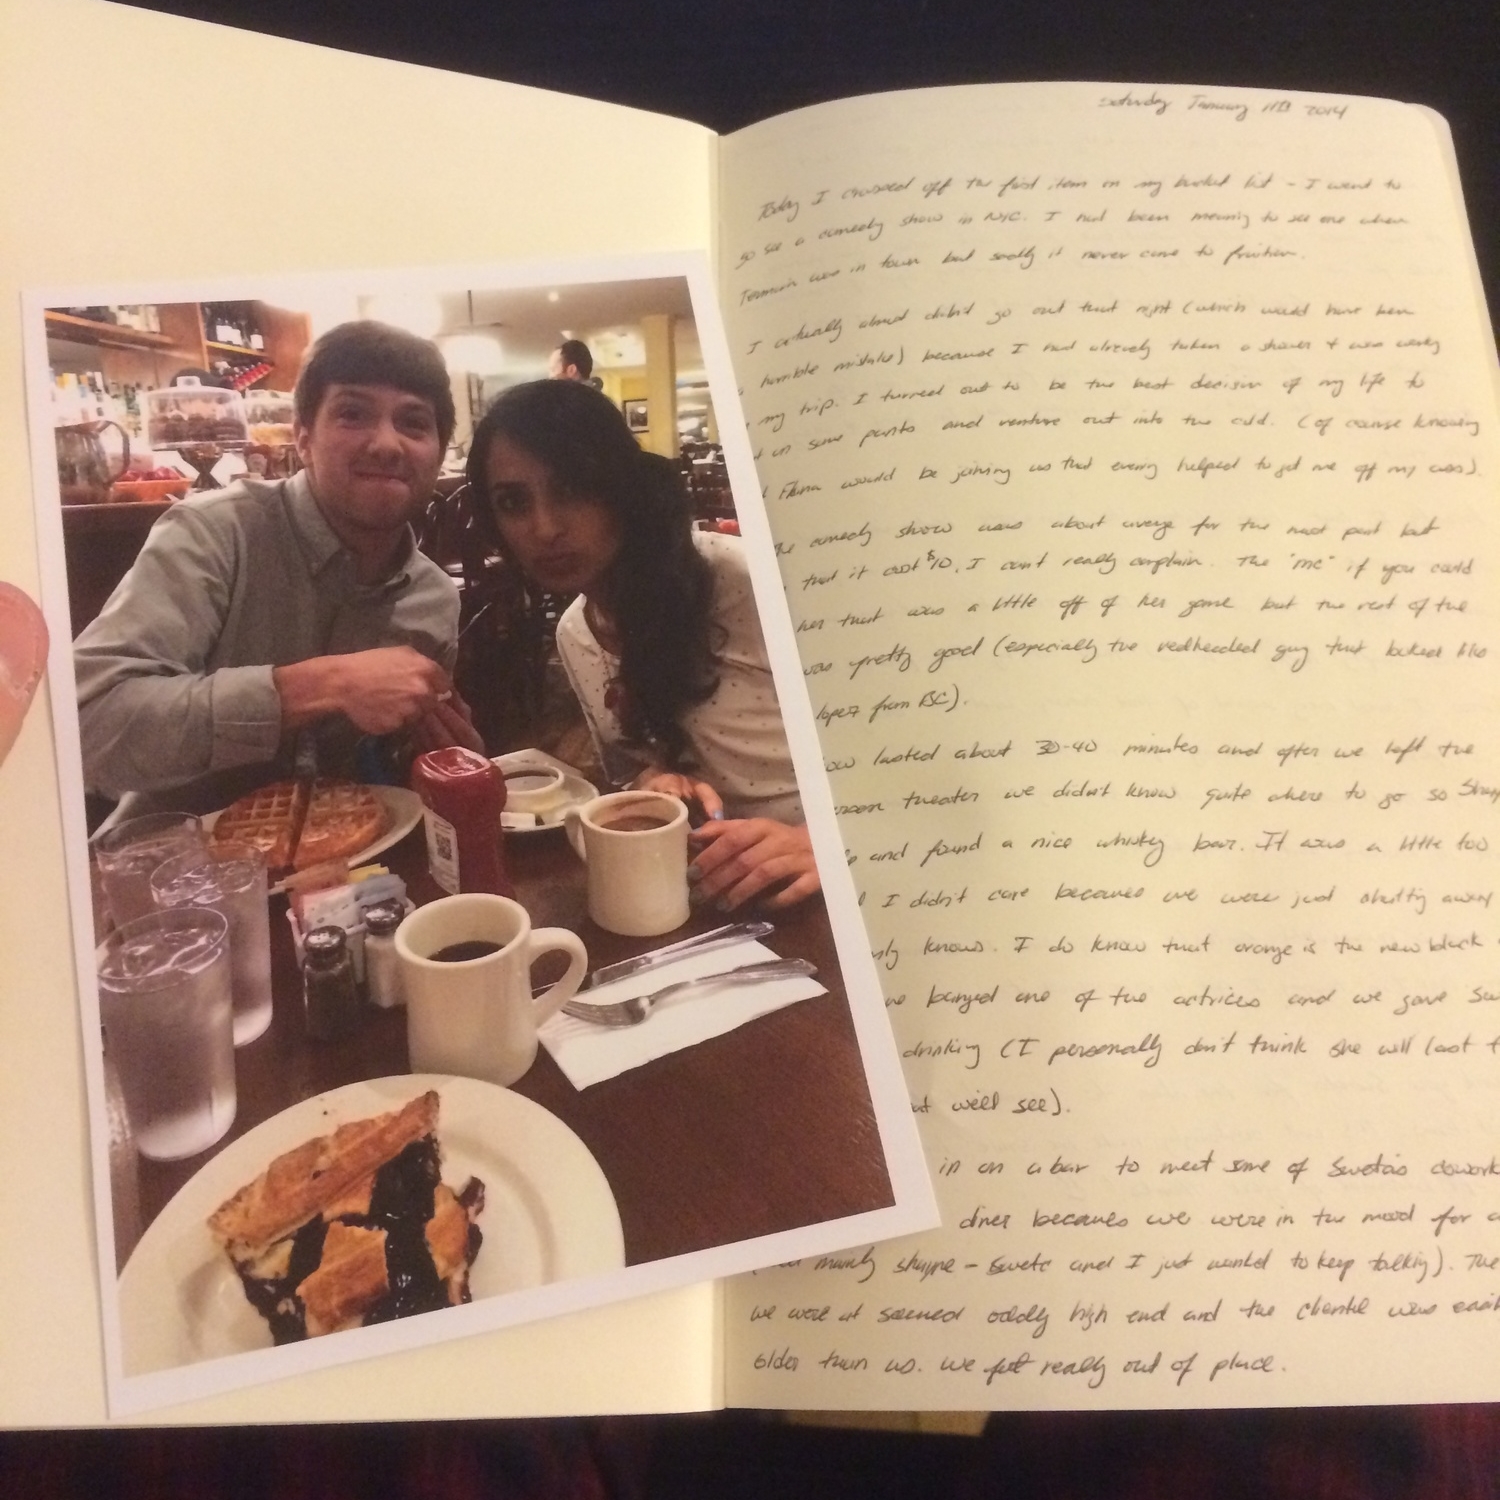 Saturday January 11th 2014
Today I crossed off the first item on my bucket list - I went to
go see a comedy show in NYC. I had been meaning to see one when
was in town but sadly it never came to fruition.
I actually almost didn't go out that night (which would have been
horrible mistake) because I had already taken a shower + was
my trip. I turned out to be the best decision of my life to
on some pants and venture out into the cold. (of course knowing
would be joining us that evening helped to get me off my ass).
comedy show was about average for the most part but
that it cost $10, I can't really complain. The "mc" if you could
her that was a little off of her game but the rest of the
was pretty good (especially the redheaded guy that looked like
lopez from BC).
lasted about 30-40 minutes and after we left the
theater we didn't know quite where to go so
and found a nice whiskey bar. It was a little too
I didn't care because we were just chatting away
knows. I do know that orange is the new black
banged one of the actrices and we gave
drinking (I personally don't think she will last
we'll see).
in on a bar to meet some of Sweta's
diner becaues we were in the mood for
mainly shayne - Sweta and I just wanted to keep talking). The
we were at seemed oddly high end and the clientel was
older than us. We felt really out of place.